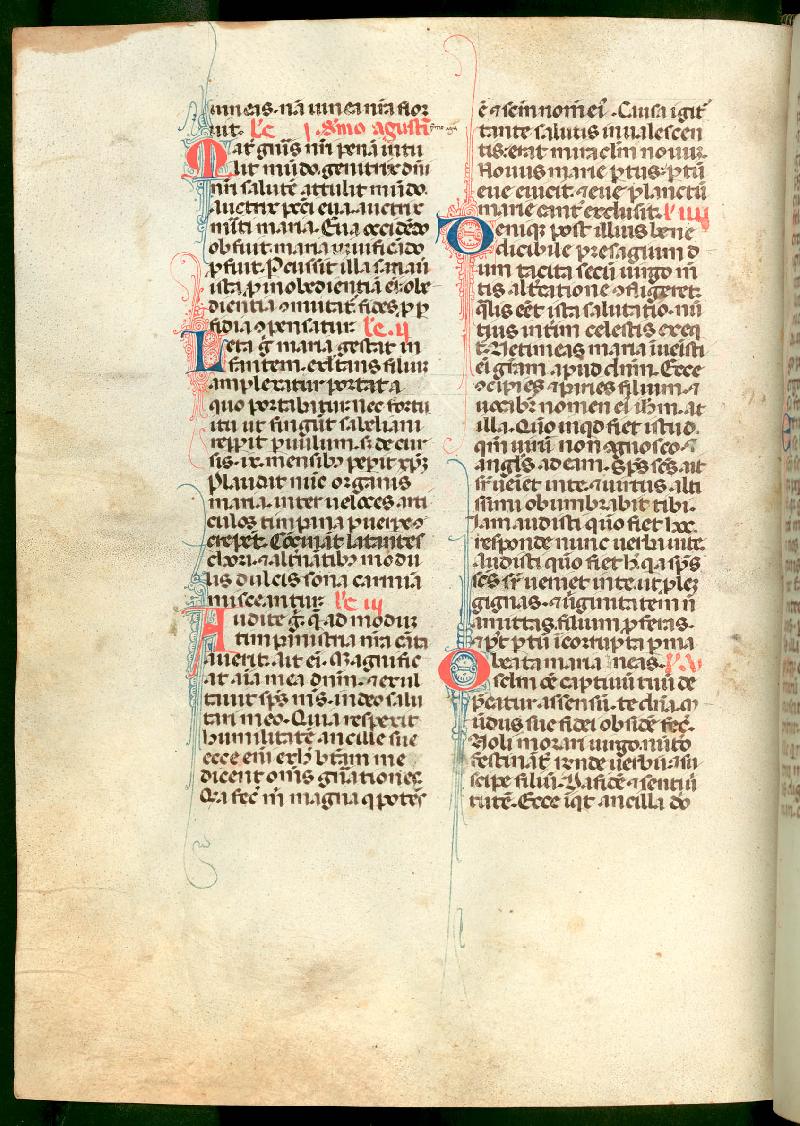 uineis. nā uinea nr̄a flor
uit. l'c ⁊. s'mo agusti
Mat̄ gn̄is nr̄i penā intu
lit mūdo. genitrix dn̄i
nr̄i salutē attulit mūdo.
Auctrix pc̄ci eua. auctrix
mīti maria. Eua occidēdo
obfuit. maria uiuificādo
ꝓfuit. Pcussit illa sanaū
ista. ꝓ inobedientia ei. obe
dientia ꝯmutat̄. fides. ꝓ ꝑ
fidia ꝯpensatur. l'c. ij
Leta g̊ maria gestat in
fantem. exl̄tans filiū
amplexatur portat a
quo portabitur. nec fortu
itu ut fingūt sabeliani
reppit puulum. s; decur
sis. ix. mensib; pepit xp̄z
Plaudit nūc organis
maria. inter ueloces arti
culos timpana puerpe ꝯ
crepēt. Cōcināt letantes
chori. ⁊ altnātib; modu
lis dulcis sona carmīa
misceantur. l'c iij
Audite g̊. q̄ad moduz
timpanistria nr̄a cāta
auerit. ait ei. Magnific
at aīa mea dn̄m. ⁊ exul
tauit sp̄s m̄s. in deo salu
tari meo. Quia respexit
humilitatē ancille sue
ecce eni exh̄ btām me
dicent om̄s gn̄ationes
Qa fec̄ m̄ magna q potēs
ē ⁊ sc̄m nom̄ ei. Causa igit̄
tante salutis inualescen
tis. erat miraclm nouū.
Nouus marie ꝑtus. ꝑtū
eue euicit. ⁊ eue planctū
marie cant̄ exclusit. l' iiij
Denique post illius bene
dicibile presagium d
um tacita secū uirgo m̄
tis altcatione ꝯfligeret.
qlis eēt ista salutatio. nū
tius int̄im celestis exeq
t̄. Ne timeas maria īueīsti
ei grām apud dnm. Ecce
ꝯcipies ⁊ paries filium. ⁊
uocabr nomen ei ih̄m. at
illa. Quō inqd fiet istud.
qm̄ uirū non agnosco. ⁊
angls ad eam. Sp̄s sc̄s ait
sr̄ueīet inte. ⁊ uirtus alti
ssimi obumbrabit tibi.
Iam audisti quō fiet hec.
responde nunc uerbū unte.
Audisti quō fiet h̄. qa sp̄s
sc̄s sr̄ ueniet inte. ut plez
gignas. ⁊ ūginitatem n̄
amittas. filium ꝓferas.
⁊ pt̄ ꝑtū īcorrupta ꝑma
O beata maria neas. l' v
selm oē captiuū tuū de
p̄catur assensū. te dn̄a. m
ūdus sue fidei obsidē fec̄.
Noli morari uirgo. nūto
festināt̄ r̄nde uerbū. ⁊ su
scipe filiū. Da fidē. ⁊ senti ū
tutē. Ecce īqt ancilla do